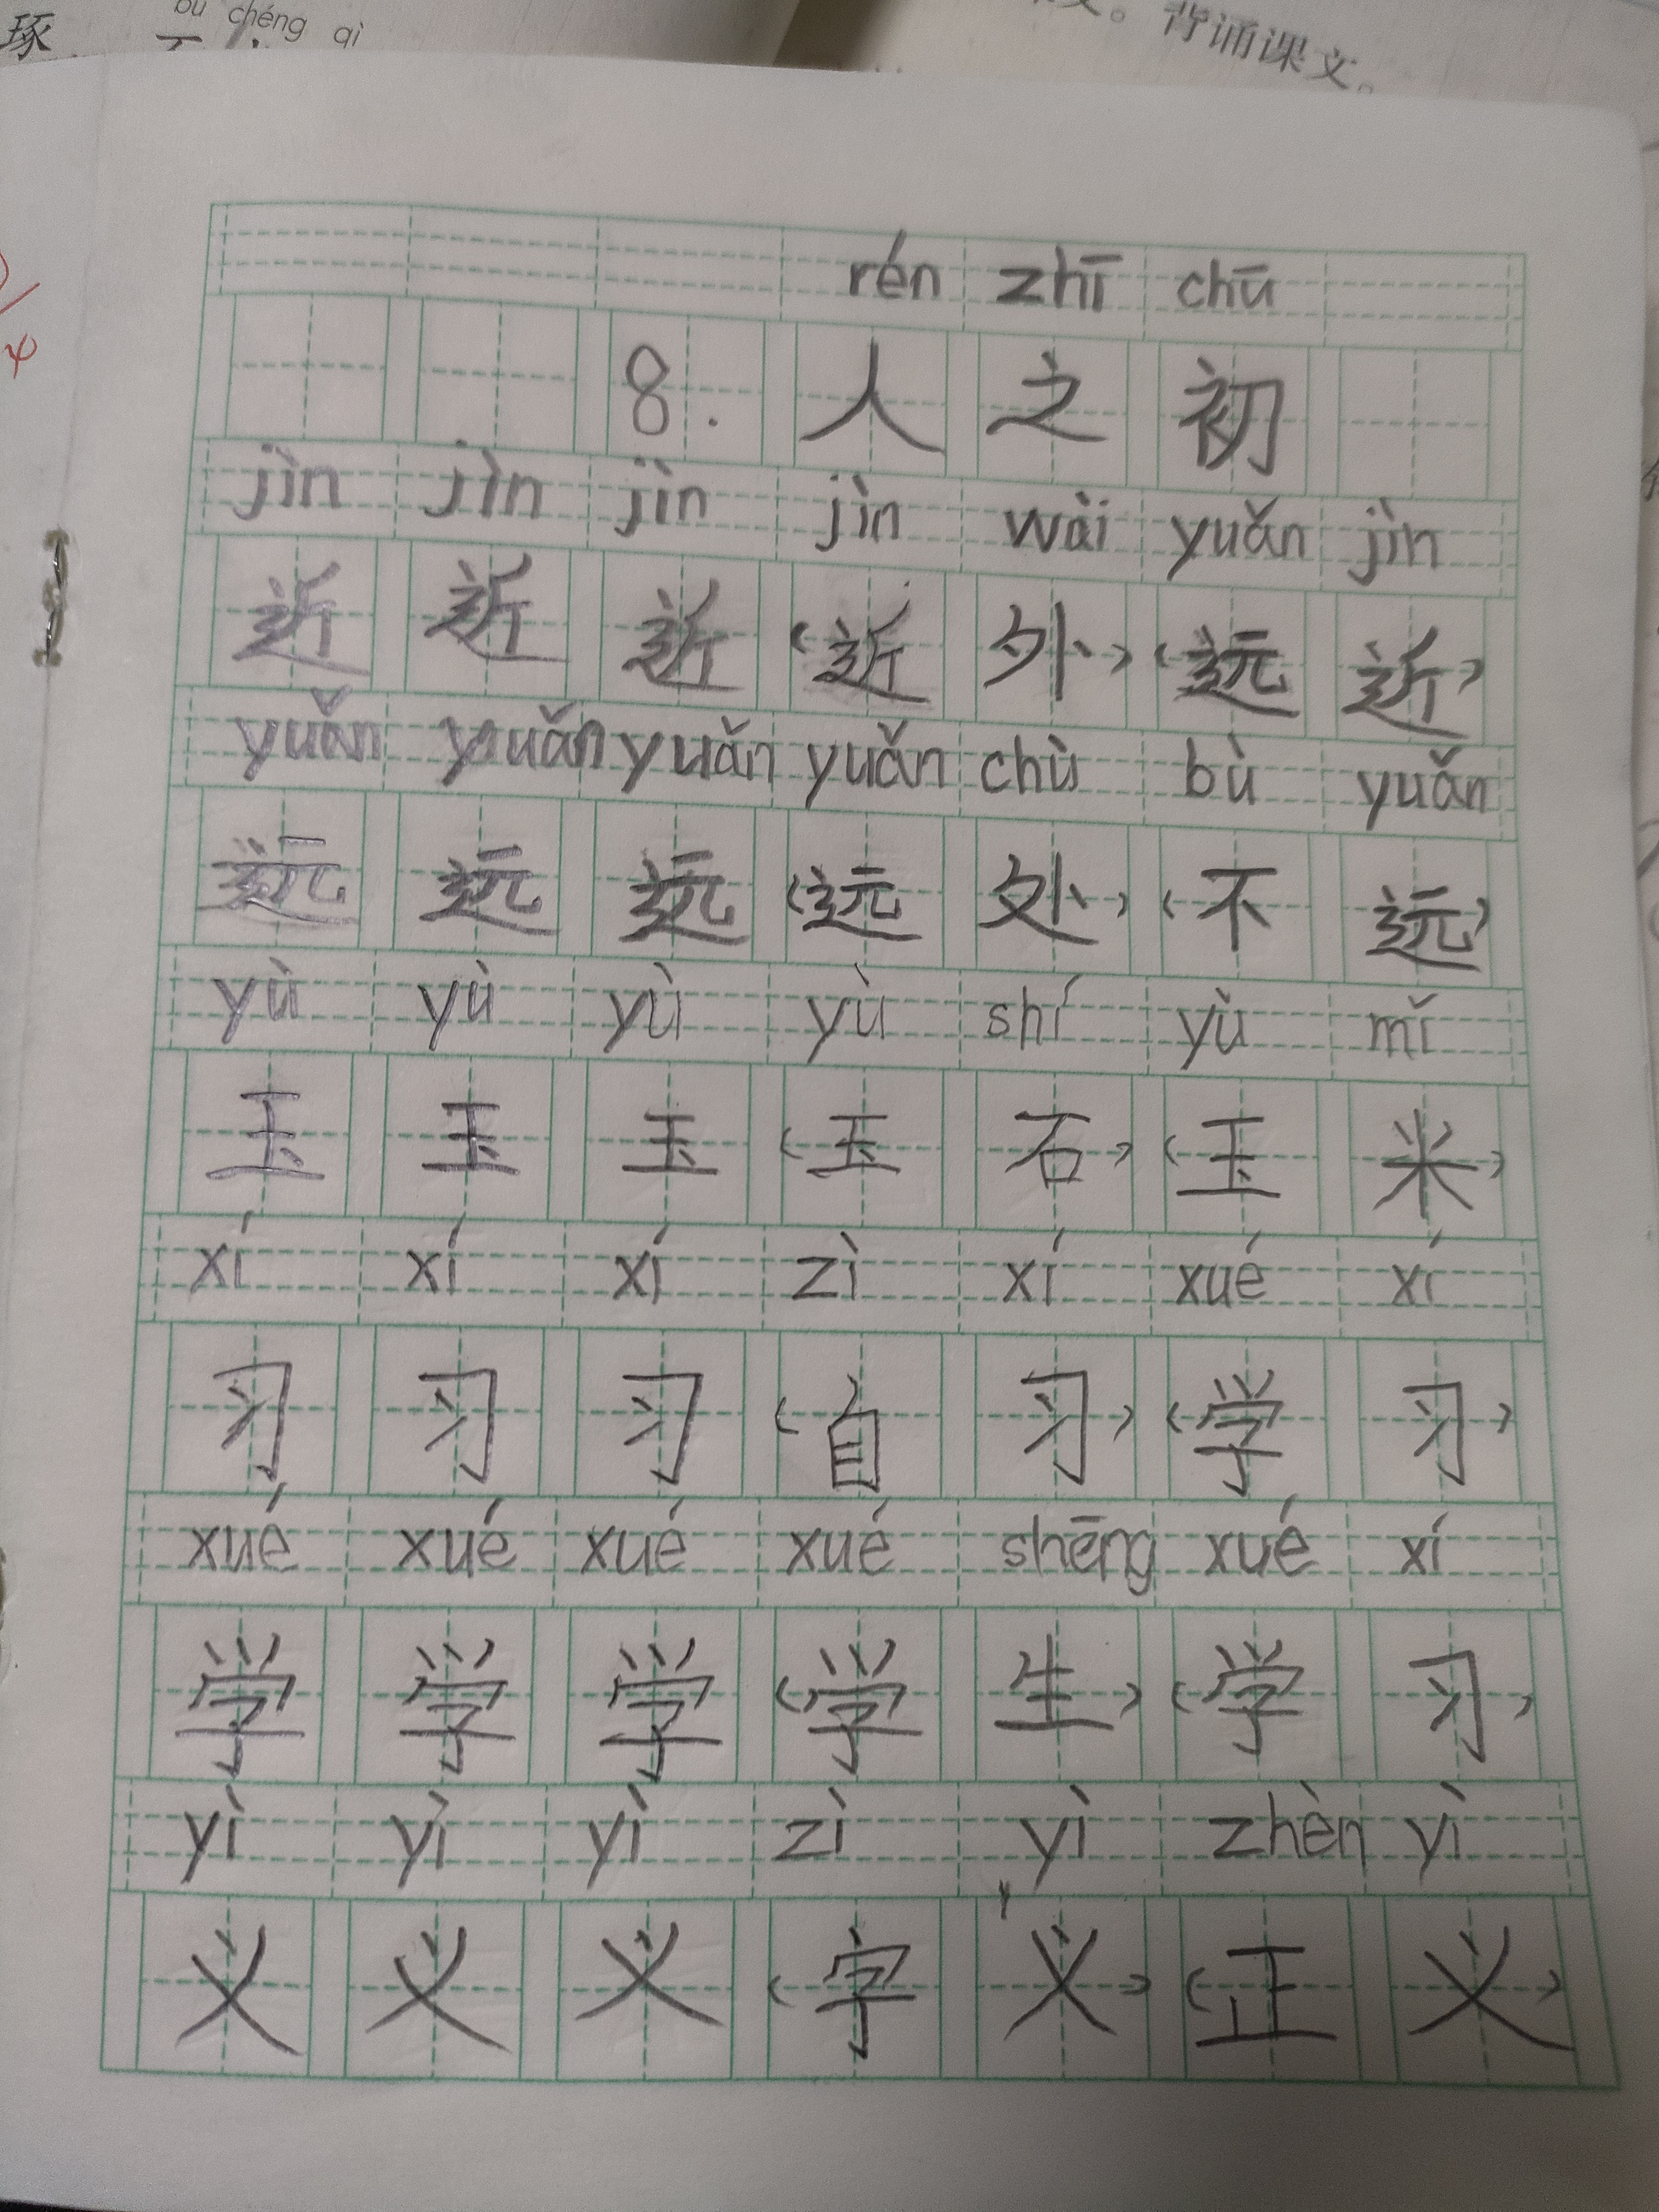 bù chéng qì
琢
背诵课文。
rén zhī chū
8. 人之初
jìn jìn jìn jìn wài yuǎn jìn
近 近 近 (近 外) (远 近)
yuǎn yuǎn yuǎn yuǎn chù bù yuǎn
远 远 远 (远 处) (不 远)
yù yù yù yù shí yù mǐ
玉 玉 玉 (玉 石) (玉 米)
xí xí xí zì xí xué xí
习 习 习 (自 习) (学 习)
xué xué xué xué shēng xué xí
学 学 学 (学 生) (学 习)
yì yì yì zì yì zhèn yì
义 义 义 (字 义) (正 义)